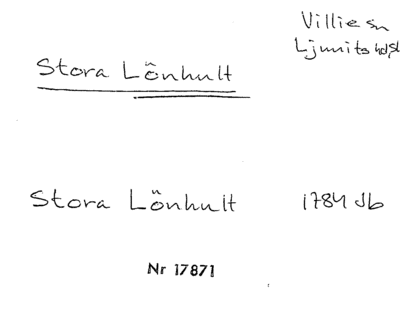 Villie sn
Ljunits hd, Sk
Stora Lönhult
Stora Lönhult 1784 Jb
Nr 17871